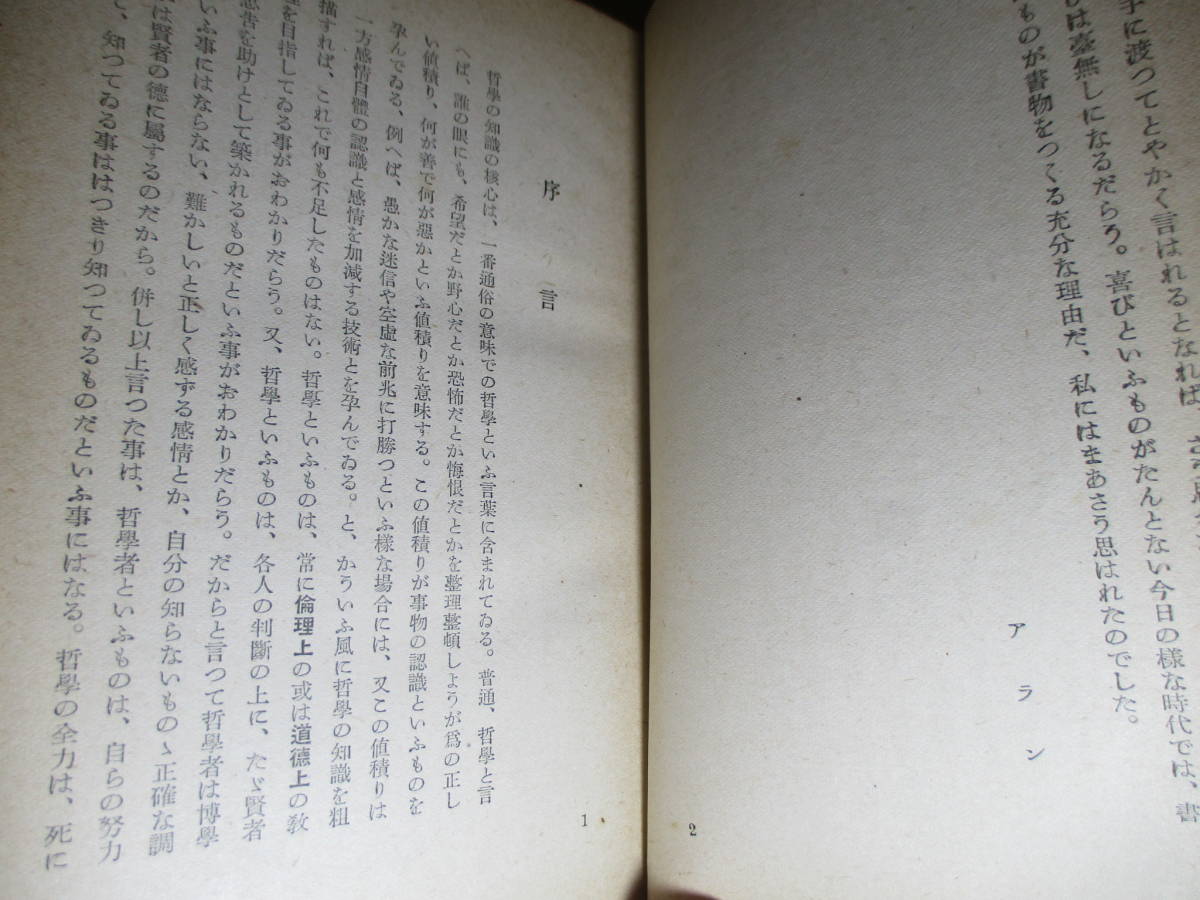 手に渡つてとやかく言はれるとなれば
は臺無しになるだらう。喜びといふものがたんとない今日の樣な時代では、書
ものが書物をつくる充分な理由だ、私にはまあさう思はれたのでした。
アラン
2
序言
哲學の知識の核心は、一番通俗の意味での哲學といふ言葉に含まれてゐる。普通、哲學と言
へば、誰の眼にも、希望だとか野心だとか恐怖だとか悔恨だとかを整理整頓しようが爲の正し
い値積り、何が善で何が惡かといふ値積りを意味する。この値積りが事物の認識といふものを
孕んでゐる、例へば、愚かな迷信や空虛な前兆に打勝つといふ樣な場合には、又この値積りは
一方感情自體の認識と感情を加減する技術とを孕んでゐる。と、かういふ風に哲學の知識を粗
描すれば、これで何も不足したものはない。哲學といふものは、常に倫理上の或は道德上の敎
を目指してゐる事がおわかりだらう。又、哲學といふものは、各人の判斷の上に、たゞ賢者
忠吿を助けとして築かれるものだといふ事がおわかりだらう。だからと言つて哲學者は博學
いふ事にはならない、難かしいと正しく感ずる感情とか、自分の知らないものゝ正確な調
は賢者の德に屬するのだから。併し以上言つた事は、哲學者といふものは、自らの努力
、知つてゐる事ははつきり知つてゐるものだといふ事にはなる。哲學の全力は、死に
1